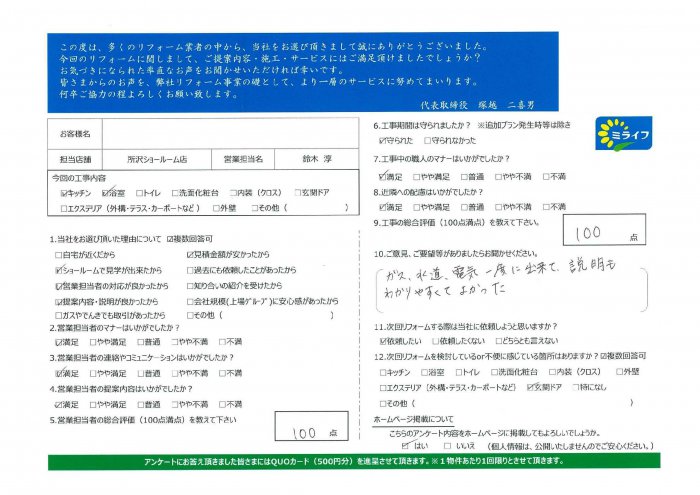 この度は、多くのリフォーム業者の中から、当社をお選び頂きまして誠にありがとうございました。
今回のリフォームに関しまして、ご提案内容・施工・サービスにはご満足頂けましたでしょうか？
お気づきになられた率直なお声をお聞かせいただければ幸いです。
皆さまからのお声を、弊社リフォーム事業の礎として、より一層のサービスに努めてまいります。
何卒ご協力の程よろしくお願い致します。
代表取締役 塚越 二喜男
お客様名
担当店舗 所沢ショールーム店 営業担当名 鈴木 淳
今回の工事内容
☑キッチン ☑浴室 □トイレ □洗面化粧台 □内装（クロス） □玄関ドア
□エクステリア（外構・テラス・カーポートなど） □外壁 □その他（ ）
1.当社をお選び頂いた理由について ☑複数回答可
□自宅が近くだから ☑見積金額が安かったから
☑ショールームで見学が出来たから □過去にも依頼したことがあったから
☑営業担当者の対応が良かったから □知り合いの紹介を受けたから
☑提案内容・説明が良かったから □会社規模(上場グループ)に安心感があったから
□ガスやでんきでも取引があったから □その他（ ）
2.営業担当者のマナーはいかがでしたか？
☑満足 □やや満足 □普通 □やや不満 □不満
3.営業担当者の連絡やコミュニケーションはいかがでしたか？
☑満足 □やや満足 □普通 □やや不満 □不満
4.営業担当者の提案内容はいかがでしたか？
☑満足 □やや満足 □普通 □やや不満 □不満
5.営業担当者の総合評価（100点満点）を教えて下さい
100 点
6.工事期間は守られましたか？ ※追加プラン発生時等は除き
☑守られた □守られなかった
ミライフ
7.工事中の職人のマナーはいかがでしたか？
☑満足 □やや満足 □普通 □やや不満 □不満
8.近隣への配慮はいかがでしたか？
☑満足 □やや満足 □普通 □やや不満 □不満
9.工事の総合評価（100点満点）を教えて下さい
100 点
10.ご意見、ご要望等がありましたらお聞かせください。
ガス、水道、電気一度に出来て、説明も
わかりやすくてよかった
11.次回リフォームする際は当社に依頼しようと思いますか？
☑依頼したい □依頼したくない □どちらとも言えない
12.次回リフォームを検討しているor不便に感じている箇所はありますか？☑複数回答可
□キッチン □浴室 □トイレ □洗面化粧台 □内装（クロス） □外壁
□エクステリア（外構・テラス・カーポートなど） ☑玄関ドア □特になし
□その他（ ）
ホームページ掲載について
こちらのアンケート内容をホームページに掲載してもよろしいでしょうか。
☑はい □いいえ （個人情報は、公開いたしませんのでご安心ください。）
アンケートにお答え頂きました皆さまにはQUOカード（500円分）を進呈させて頂きます。※１物件あたり1回限りとさせて頂きます。